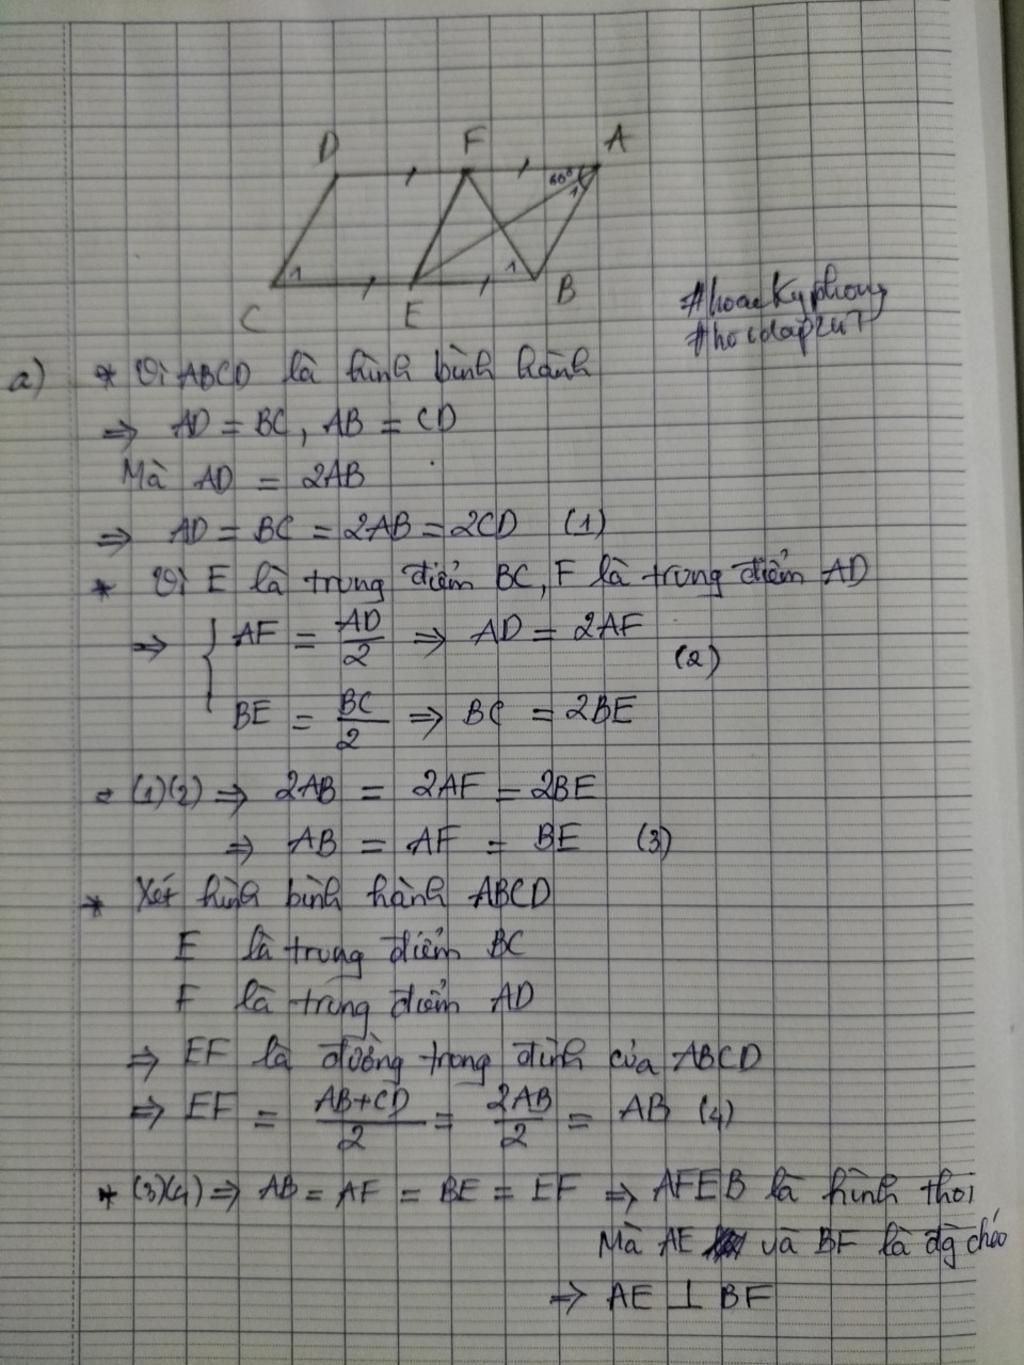 D F A
60°
1
1 1
C E B
#hoidap247
a) * Vì ABCD là hình bình hành
⇒ AD = BC, AB = CD
Mà AD = 2AB
⇒ AD = BC = 2AB = 2CD (1)
* Vì E là trung điểm BC, F là trung điểm AD
⇒ { AF = AD/2 ⇒ AD = 2AF
(2)
BE = BC/2 ⇒ BC = 2BE
(1)(2) ⇒ 2AB = 2AF = 2BE
⇒ AB = AF = BE (3)
* Xét hình bình hành ABCD
E là trung điểm BC
F là trung điểm AD
⇒ EF là đường trung bình của ABCD
⇒ EF = AB+CD/2 = 2AB/2 = AB (4)
* (3)(4) ⇒ AB = AF = BE = EF ⇒ AFEB là hình thoi
Mà AE và BF là đg chéo
⇒ AE ⊥ BF